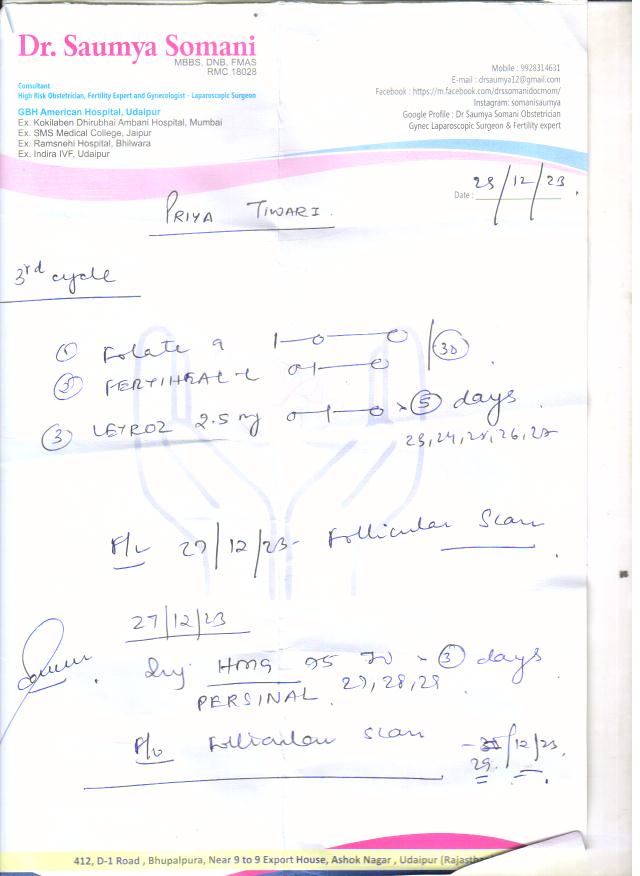 Dr. Saumya Somani
MBBS, DNB, FMAS
RMC 18028
Consultant
High Risk Obstetrician, Fertility Expert and Gynecologist - Laparoscopic Surgeon
GBH American Hospital, Udaipur
Ex. Kokilaben Dhirubhai Ambani Hospital, Mumbai
Ex. SMS Medical College, Jaipur
Ex. Ramsnehi Hospital, Bhilwara
Ex. Indira IVF, Udaipur
Mobile : 9928314631
E-mail : drsaumya12@gmail.com
Facebook : https://m.facebook.com/drssomanidocmom/
Instagram: somanisaumya
Google Profile : Dr Saumya Somani Obstetrician
Gynec Laparoscopic Surgeon & Fertility expert
Date : 23/12/23
PRIYA TIWARI
3rd cycle
① Folate 9 1-0-0
② 0-1-0 30
③ LETROZ 2.5 mg 0-1-0 × ⑤ days
23, 24, 25, 26, 27
F/U 27/12/23 - Follicular Scan
27/12/23
Inj HMG 75 IU × ③ days
27, 28, 29
F/U Follicular Scan 29/12/23
412, D-1 Road , Bhupalpura, Near 9 to 9 Export House, Ashok Nagar , Udaipur